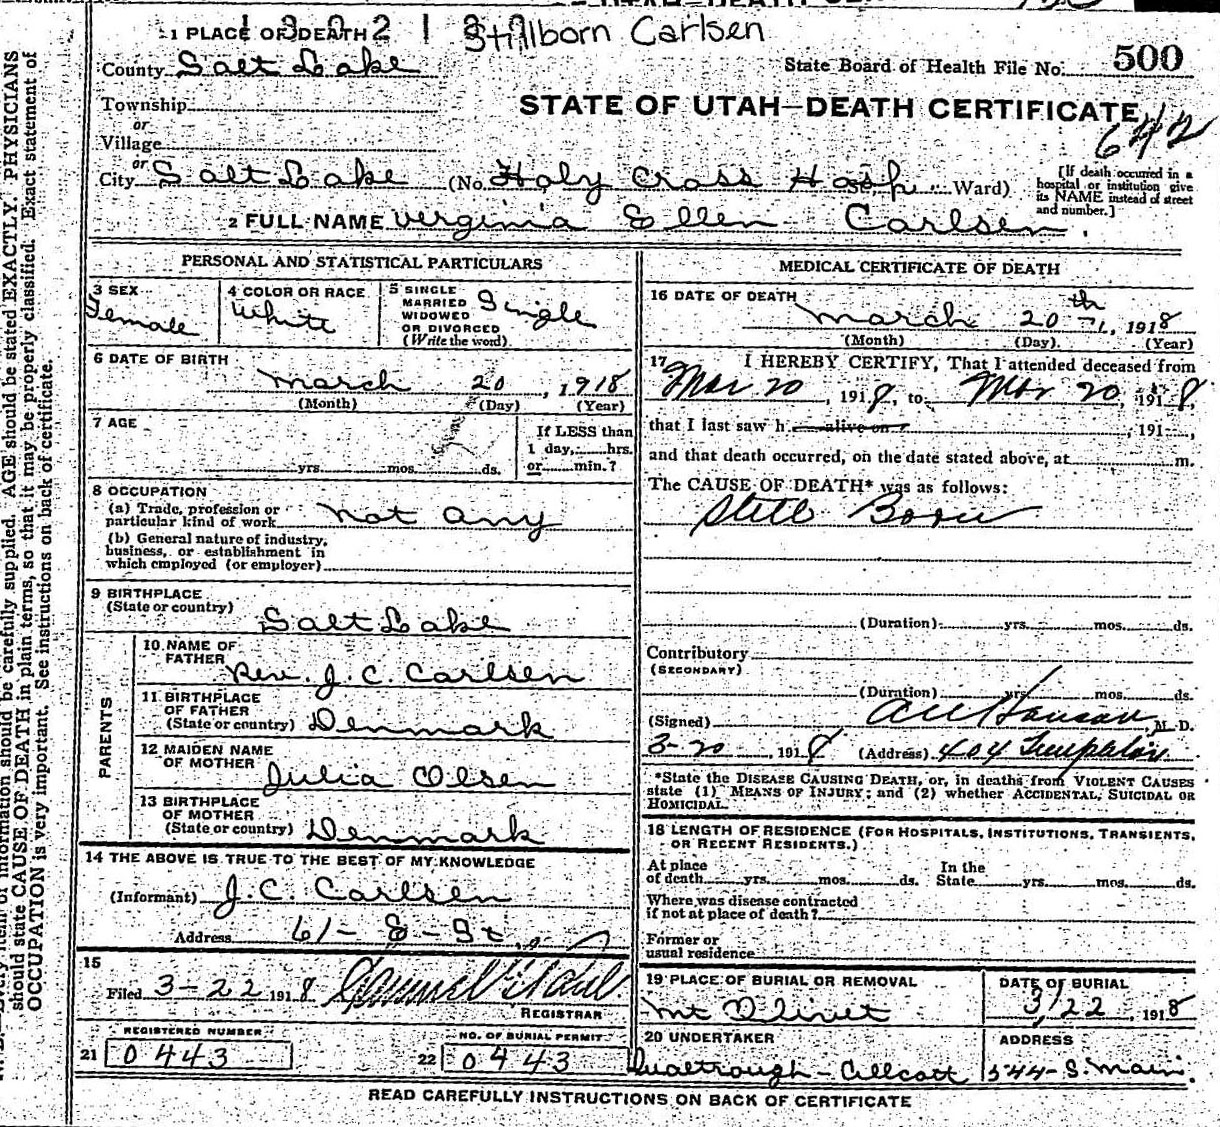 Stillborn Carlsen
1 PLACE OF DEATH
County Salt Lake
State Board of Health File No. 500
Township
STATE OF UTAH—DEATH CERTIFICATE
or
642
Village
or
City Salt Lake (No. Holy Cross Hosp. Ward)
[If death occurred in a
hospital or institution give
its NAME instead of street
and number.]
2 FULL NAME Verginia Ellen Carlsen.
PERSONAL AND STATISTICAL PARTICULARS
3 SEX
Female
4 COLOR OR RACE
White
5 SINGLE
MARRIED
WIDOWED
OR DIVORCED
(Write the word)
Single
6 DATE OF BIRTH
March 20, 1918
(Month) (Day) (Year)
7 AGE
yrs. mos. ds.
If LESS than
1 day, hrs.
or min.?
8 OCCUPATION
(a) Trade, profession or
particular kind of work not any
(b) General nature of industry,
business, or establishment in
which employed (or employer)
9 BIRTHPLACE
(State or country)
Salt Lake
PARENTS
10 NAME OF
FATHER
Rev. J. C. Carlsen
11 BIRTHPLACE
OF FATHER
(State or country) Denmark
12 MAIDEN NAME
OF MOTHER
Julia Olsen
13 BIRTHPLACE
OF MOTHER
(State or country) Denmark
14 THE ABOVE IS TRUE TO THE BEST OF MY KNOWLEDGE
(Informant) J. C. Carlsen
Address
15
Filed 3-22 1918
REGISTRAR
REGISTERED NUMBER
21 0443
NO. OF BURIAL PERMIT
22 0443
MEDICAL CERTIFICATE OF DEATH
16 DATE OF DEATH
March 20th, 1918
(Month) (Day) (Year)
17 I HEREBY CERTIFY, That I attended deceased from
Mar 20, 1918, to Mar 20, 1918,
that I last saw h alive on , 191 ,
and that death occurred, on the date stated above, at m.
The CAUSE OF DEATH* was as follows:
Still Born
(Duration) yrs. mos. ds.
Contributory
(SECONDARY)
(Duration) yrs. mos. ds.
(Signed) M. D.
3-20, 1918 (Address) 404
*State the DISEASE CAUSING DEATH, or, in deaths from VIOLENT CAUSES
state (1) MEANS OF INJURY; and (2) whether ACCIDENTAL, SUICIDAL OR
HOMICIDAL.
18 LENGTH OF RESIDENCE (FOR HOSPITALS, INSTITUTIONS, TRANSIENTS,
OR RECENT RESIDENTS.)
At place
of death yrs. mos. ds.
In the
State yrs. mos. ds.
Where was disease contracted
if not at place of death?
Former or
usual residence
19 PLACE OF BURIAL OR REMOVAL
Mt Olivet
DATE OF BURIAL
3/22, 1918
20 UNDERTAKER
ADDRESS
544- S. Main.
READ CAREFULLY INSTRUCTIONS ON BACK OF CERTIFICATE
information should be carefully supplied. AGE should be stated EXACTLY. PHYSICIANS
should state CAUSE OF DEATH in plain terms, so that it may be properly classified. Exact statement of
OCCUPATION is very important. See instructions on back of certificate.